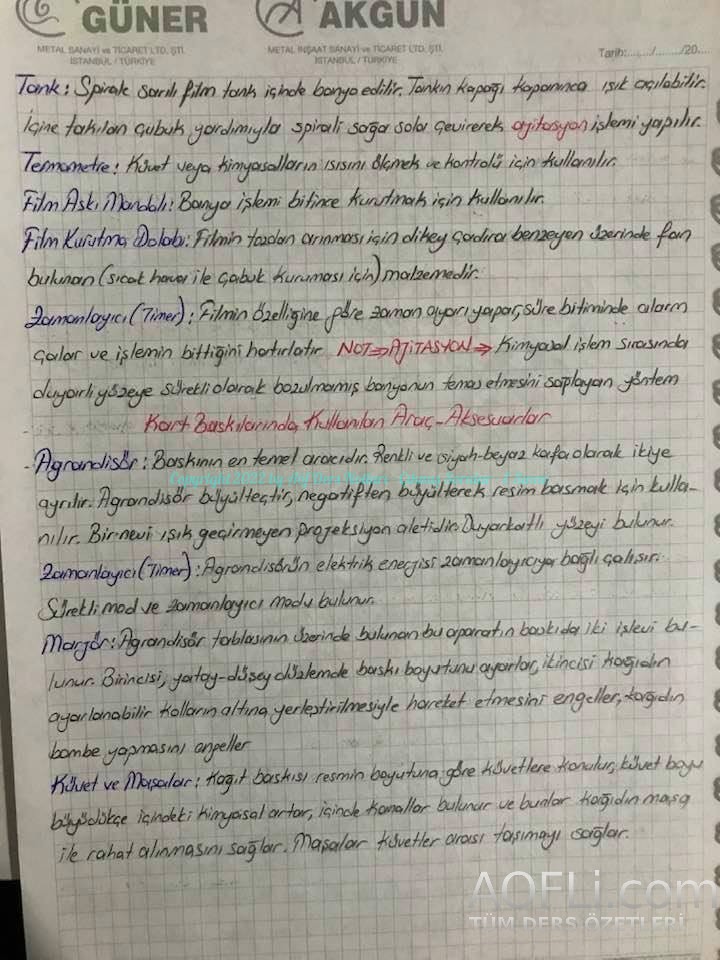 GÜNER
METAL SANAYİ ve TİCARET LTD. ŞTİ.
İSTANBUL / TÜRKİYE
AKGÜN
METAL İNŞAAT SANAYİ ve TİCARET LTD. ŞTİ.
İSTANBUL / TÜRKİYE
Tarih:....../....../20....
Tank: Spirale sarılı film tank içinde banyo edilir. Tankın kapağı kapanınca ışık açılabilir.
İçine takılan çubuk yardımıyla spirali sağa sola çevirerek ajitasyon işlemi yapılır.
Termometre: Küvet veya kimyasalların ısısını ölçmek ve kontrolü için kullanılır.
Film Askı Mandalı: Banyo işlemi bitince kurutmak için kullanılır.
Film Kurutma Dolabı: Filmin tozdan arınması için dikey çadıra benzeyen üzerinde fan
bulunan (sıcak hava ile çabuk kuruması için) malzemedir.
Zamanlayıcı (Timer): Filmin özelliğine göre zaman ayarı yapar, süre bitiminde alarm
çalar ve işlemin bittiğini hatırlatır NOT⇒AJİTASYON⇒ Kimyasal işlem sırasında
duyarlı yüzeye sürekli olarak bozulmamış banyonun temas etmesini sağlayan yöntem
Kart Baskılarında Kullanılan Araç-Aksesuarlar
- Agrandisör: Baskının en temel aracıdır. Renkli ve siyah-beyaz kafa olarak ikiye
ayrılır. Agrandisör büyülteçtir, negatiften büyülterek resim basmak için kulla-
nılır. Bir nevi ışık geçirmeyen projeksiyon aletidir. Duyarkatlı yüzeyi bulunur.
Zamanlayıcı (Timer): Agrandisörün elektrik enerjisi zamanlayıcıya bağlı çalışır.
Sürekli mod ve zamanlayıcı modu bulunur.
Marjör: Agrandisör tablasının üzerinde bulunan bu aparatın baskıda iki işlevi bu-
lunur. Birincisi, yatay-düşey düzlemde baskı boyutunu ayarlar, ikincisi kağıdın
ayarlanabilir kolların altına yerleştirilmesiyle hareket etmesini engeller, kağıdın
bombe yapmasını engeller
Küvet ve Maşalar: Kağıt baskısı resmin boyutuna göre küvetlere konulur, küvet boyu
büyüdükçe içindeki kimyasal artar, içinde kanallar bulunur ve bunlar kağıdın maşa
ile rahat alınmasını sağlar. Maşalar küvetler arası taşımayı sağlar.
AOFLi.com
TÜM DERS ÖZETLERİ